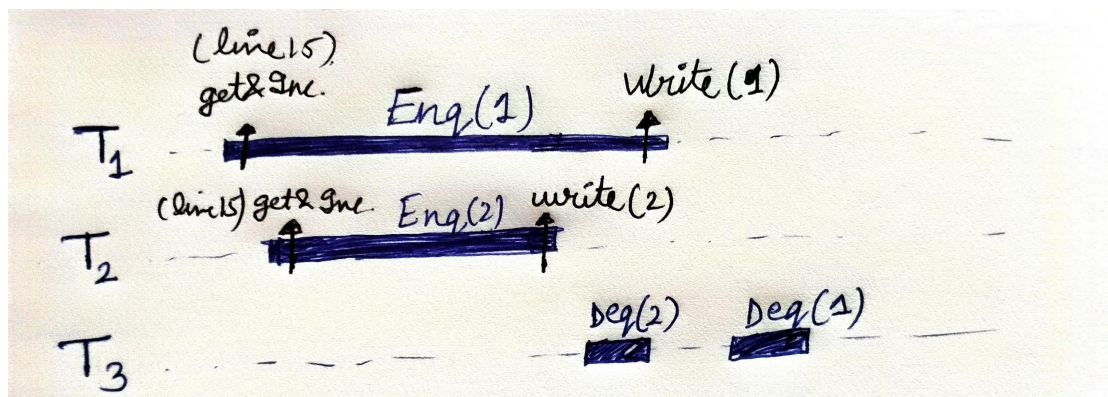 (line15)
get&Inc.
Enq(1)
Write(1)
T1
(line15) get&Inc.
Enq(2)
write(2)
T2
Deq(2)
Deq(1)
T3